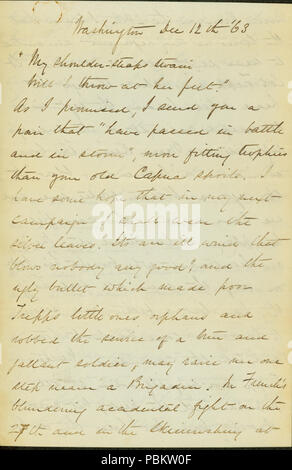 Washington Dec 12th '63
"My shoulder-straps twain
Will I throw at her feet."
As I promised, I send you a
pair that "have passed in battle
and in storm", more fitting trophies
than your old Capua spoils. I
have some hope that in my next
campaign I shall wear the
silver leaves. It's an ill wind that
blows nobody any good; and the
ugly bullet which made poor
Trepp's little ones orphans and
robbed the service of a true and
gallant soldier, may raise me one
step nearer a Brigadier. In French's
blundering accidental fight on the
27th and in the skirmishing at
alamy
Image ID: PBKW0F
www.alamy.com